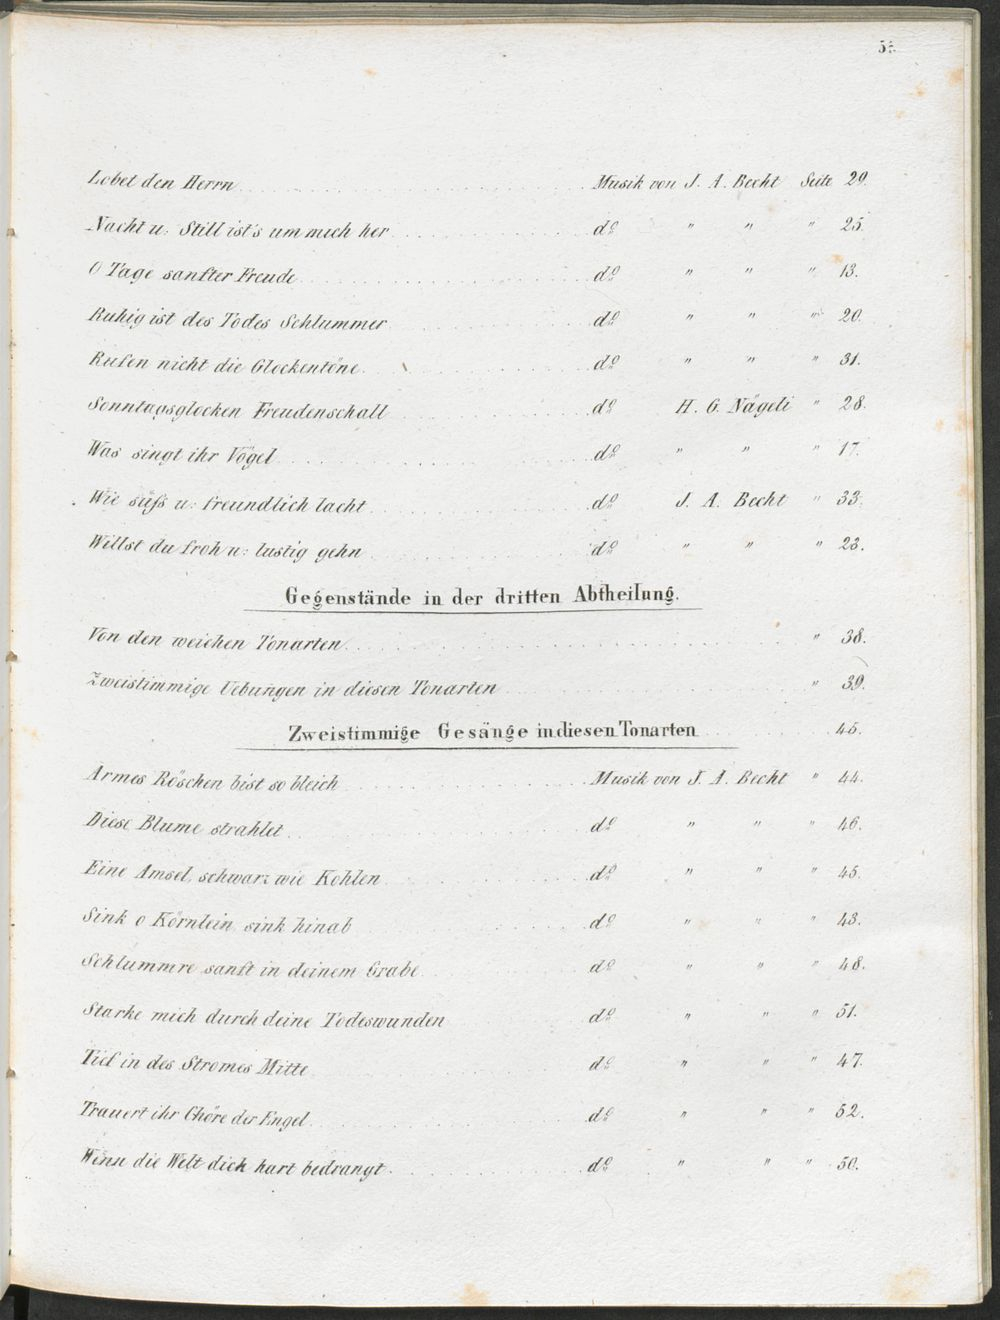 Lobet den Herrn . . . Musik von J. A. Becht Seite 29.
Nacht u: Still ist's um mich her . . . do " " " 25.
O Tage sanfter Freude . . . do " " " 13.
Ruhig ist des Todes Schlummer . . . do " " " 20.
Rufen nicht die Glockentöne . . . do " " " 31.
Sonntagsglocken Freudenschall . . . do H. G. Nägeli " 28.
Was singt ihr Vögel . . . do " " " 17.
Wie süß u: freundlich lacht . . . do J. A. Becht " 33.
Willst du froh u: lustig gehn . . . do " " " 23.
Gegenstände in der dritten Abtheilung.
Von den weichen Tonarten . . . " 38.
Zweistimmige Uebungen in diesen Tonarten . . . " 39.
Zweistimmige Gesänge in diesen Tonarten . . . 45.
Armes Röschen bist so bleich . . . Musik von J. A. Becht " 44.
Diese Blume strahlet . . . do " " " 46.
Eine Amsel, schwarz wie Kohlen . . . do " " " 45.
Sink o Körnlein, sink hinab . . . do " " " 43.
Schlummre sanft in deinem Grabe . . . do " " " 48.
Starke mich durch deine Todeswunden . . . do " " " 51.
Tief in des Stromes Mitte . . . do " " " 47.
Trauert ihr Chöre der Engel . . . do " " " 52.
Wenn die Welt dich hart bedrangt . . . do " " " 50.